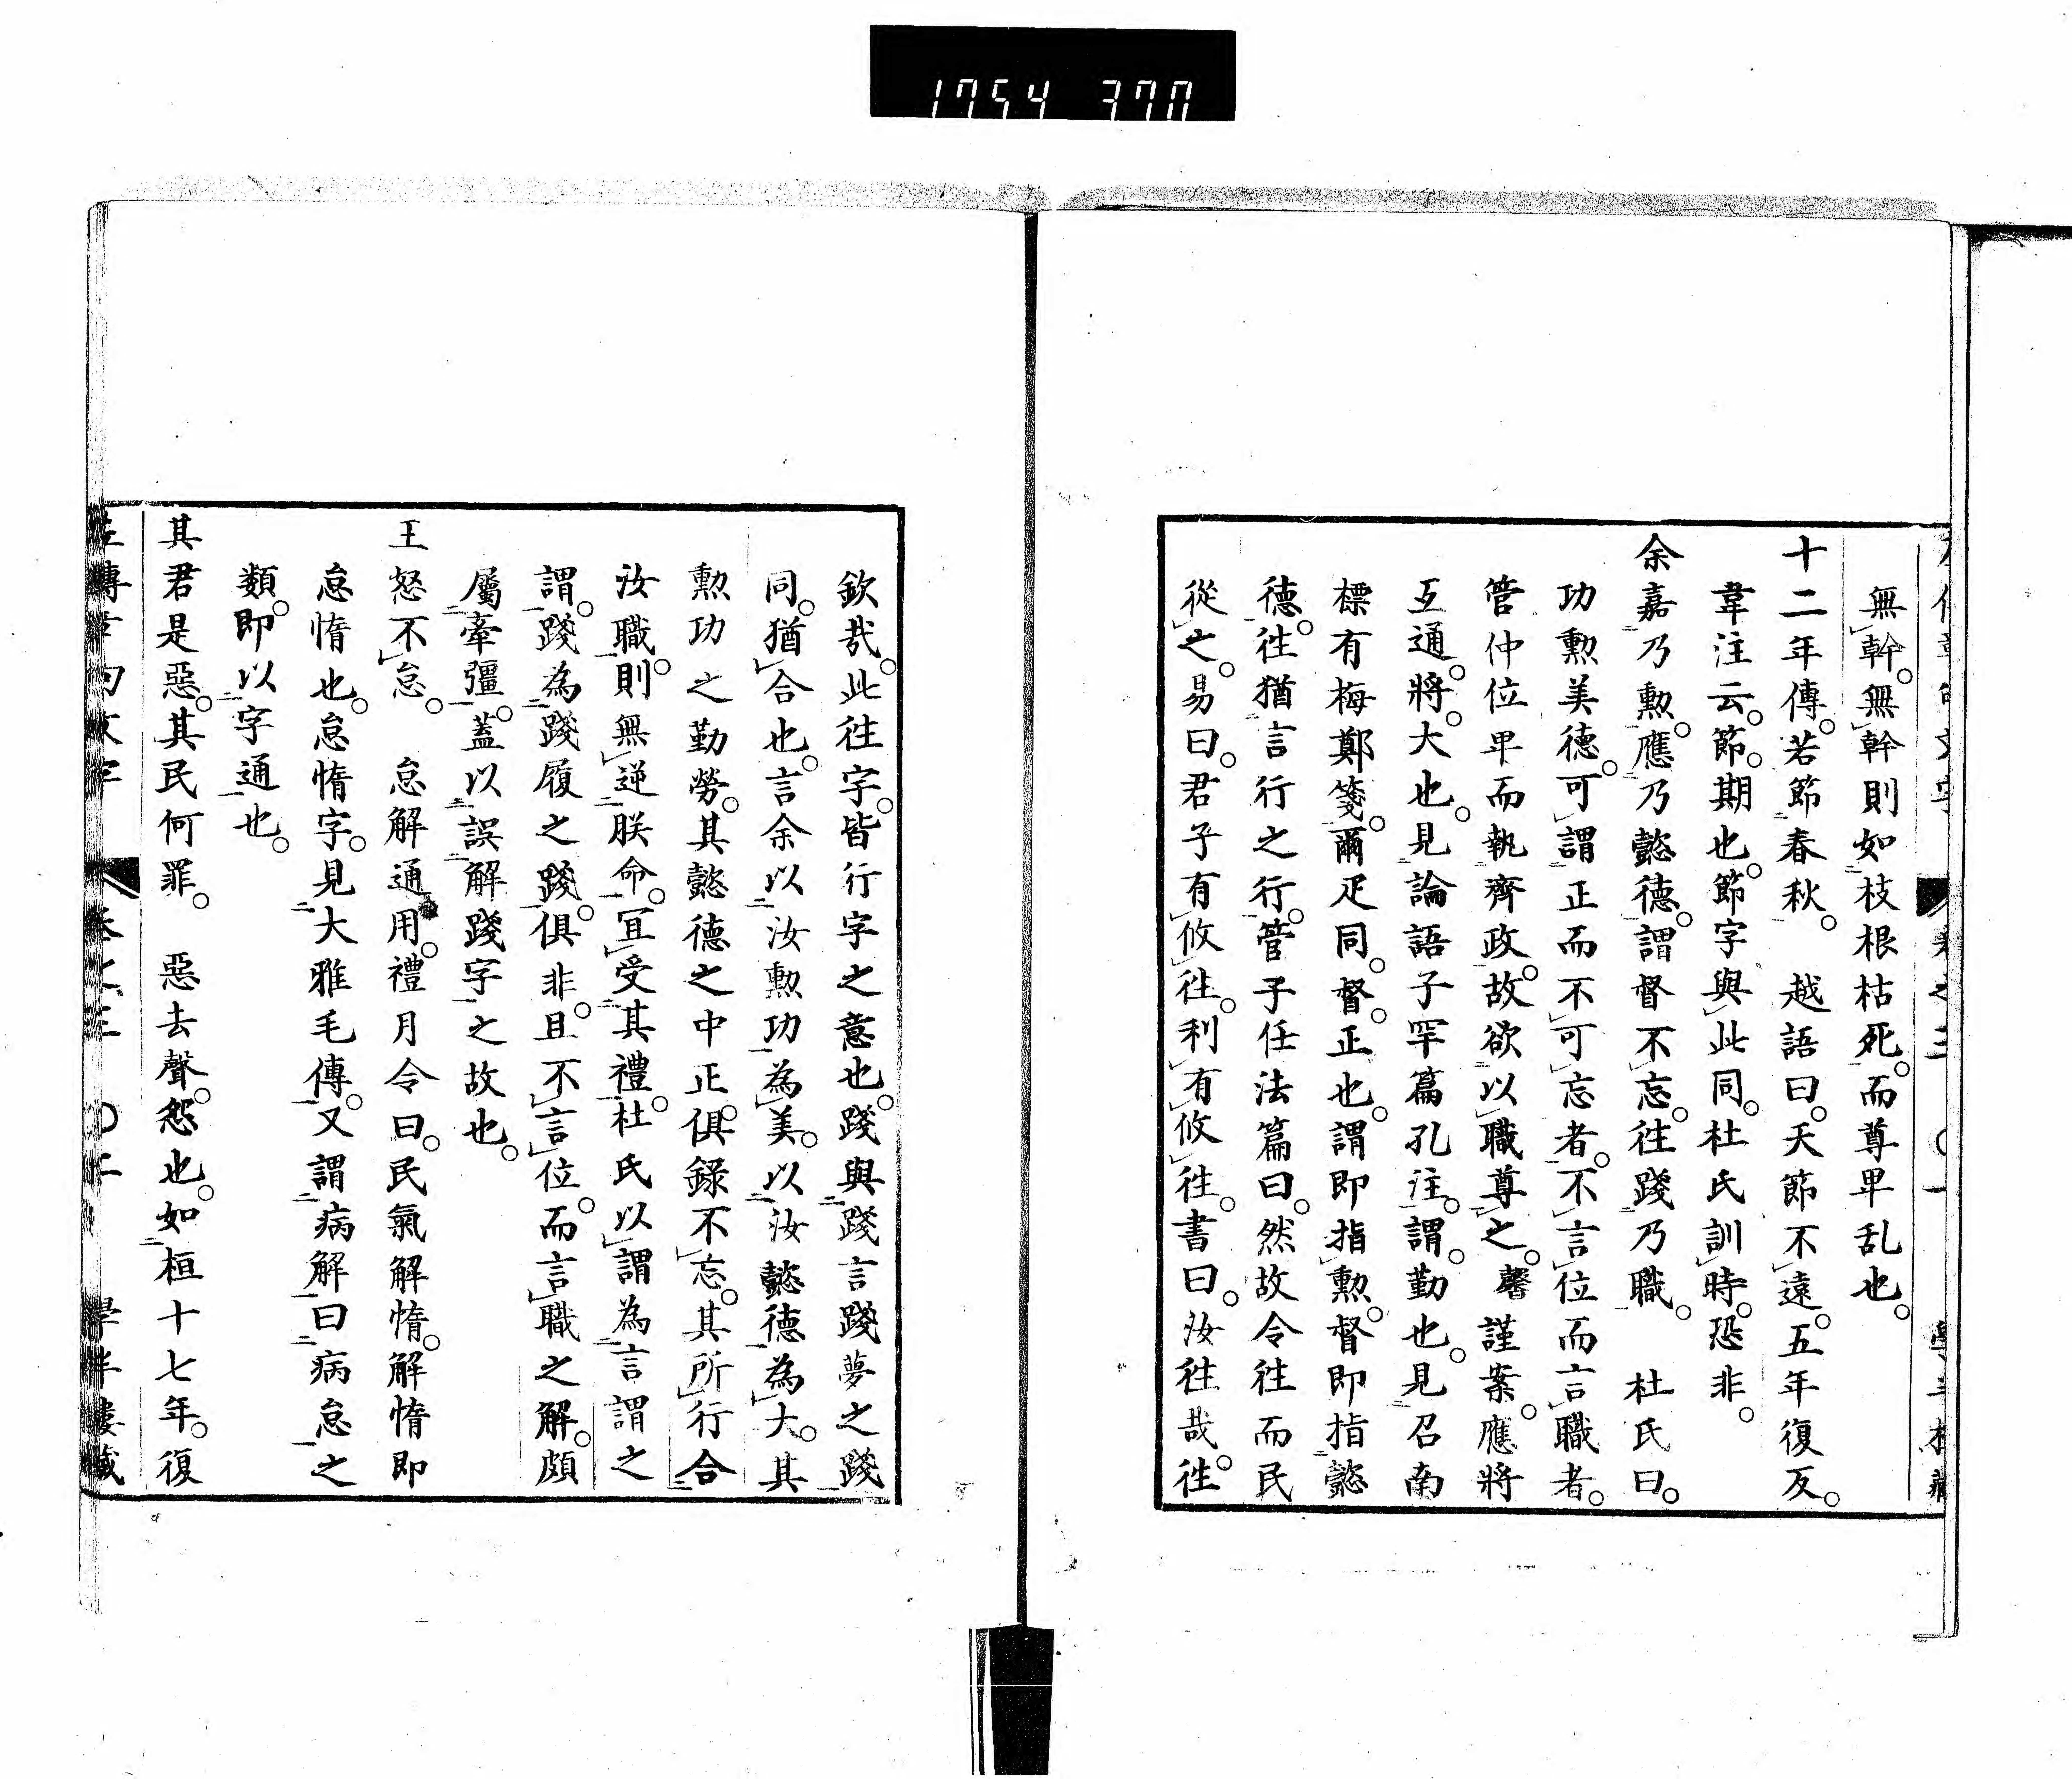 1754 370
無幹。無幹則如枝根枯死。而尊卑乱也。
十二年傳。若節春秋。 越語曰。天節不遠。五年復反。
韋注云。節。期也。節字與此同。杜氏訓時。恐非。
余嘉乃勲。應乃懿德。謂督不忘。往踐乃職。 杜氏曰。
功勲美德。可謂正而不可忘者。不言位而言職者。
管仲位卑而執齊政。故欲以職尊之。馨謹案。應將
互通。將。大也。見論語子罕篇孔注。謂。勤也。見召南
標有梅鄭箋。爾疋同。督。正也。謂即指勲。督即指懿
德。往猶言行之行。管子任法篇曰。然故令往而民
從之。易曰。君子有攸往。利有攸往。書曰。汝往哉。往
欽哉。此往字。皆行字之意也。踐與踐言踐夢之踐
同。猶合也。言余以汝勲功為美。以汝懿德為大。其
勲功之勤勞。其懿德之中正。俱錄不忘。其所行合
汝職。則無逆朕命。冝受其禮。杜氏以謂為言謂之
謂。踐為踐履之踐。俱非。且不言位。而言職之解。頗
屬牽彊。蓋以誤解踐字之故也。
王怒不怠。 怠解通用。禮月令曰。民氣解惰。解惰即
怠惰也。怠惰字。見大雅毛傳。又謂病解曰病怠之
類。即以字通也。
其君是惡。其民何罪。 惡去聲。怨也。如桓十七年。復
左傳章句文字 卷之三 〇二 學半樓藏